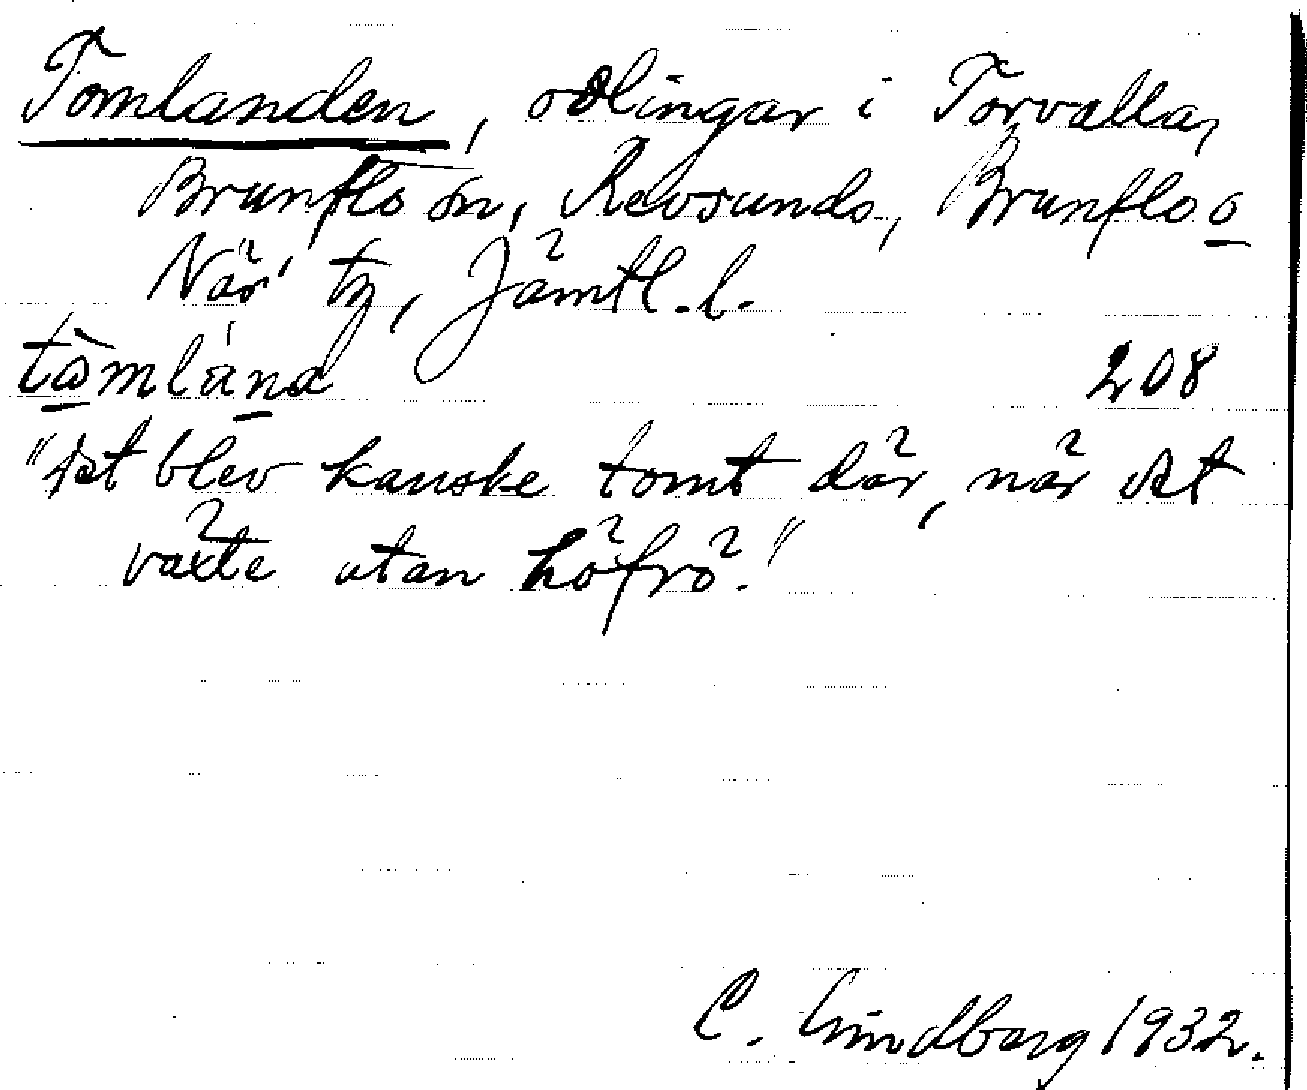 Tomlanden, odlingar i Torvalla,
Brunflo sn, Revsunds, Brunflo o
Näs' tg, Jämtl. l.
tòmlánd 208
"Det blev kanske tomt där, när det
växte utan höfrö."
C. Lindberg 1932.